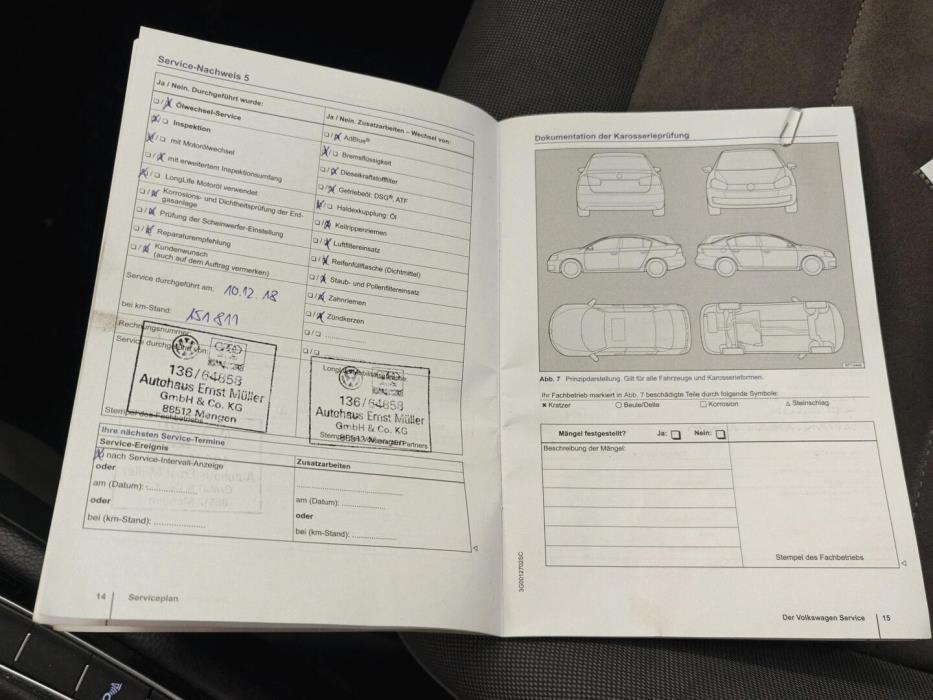 Service-Nachweis 5
Ja / Nein. Durchgeführt wurde:
Ölwechsel-Service
Inspektion
mit Motorölwechsel
mit erweitertem Inspektionsumfang
LongLife Motoröl verwendet
Korrosions- und Dichtheitsprüfung der Erd-
gasanlage
Prüfung der Scheinwerfer-Einstellung
Reparaturempfehlung
Kundenwunsch
(auch auf dem Auftrag vermerken)
Service durchgeführt am: 10.12.18
bei km-Stand: 151811
Rechnungsnummer
Service durchgeführt von:
136/64858
Autohaus Ernst Müller
GmbH & Co. KG
88512 Mengen
Stempel des Fachbetriebs
Ja / Nein. Zusatzarbeiten – Wechsel von:
AdBlue®
Bremsflüssigkeit
Dieselkraftstofffilter
Getriebeöl: DSG®, ATF
Haldexkupplung: Öl
Keilrippenriemen
Luftfiltereinsatz
Reifenfüllflasche (Dichtmittel)
Staub- und Pollenfiltereinsatz
Zahnriemen
Zündkerzen
136/64858
Autohaus Ernst Müller
GmbH & Co. KG
88512 Mengen
Ihre nächsten Service-Termine
Service-Ereignis
nach Service-Intervall-Anzeige
oder
am (Datum):
oder
bei (km-Stand):
Zusatzarbeiten
am (Datum):
oder
bei (km-Stand):
14 Serviceplan
Dokumentation der Karosserieprüfung
Abb. 7 Prinzipdarstellung. Gilt für alle Fahrzeuge und Karosserieformen.
Ihr Fachbetrieb markiert in Abb. 7 beschädigte Teile durch folgende Symbole:
Kratzer Beule/Delle Korrosion Steinschlag
Mängel festgestellt? Ja: Nein:
Beschreibung der Mängel:
Stempel des Fachbetriebs
3G0012702SC
Der Volkswagen Service 15